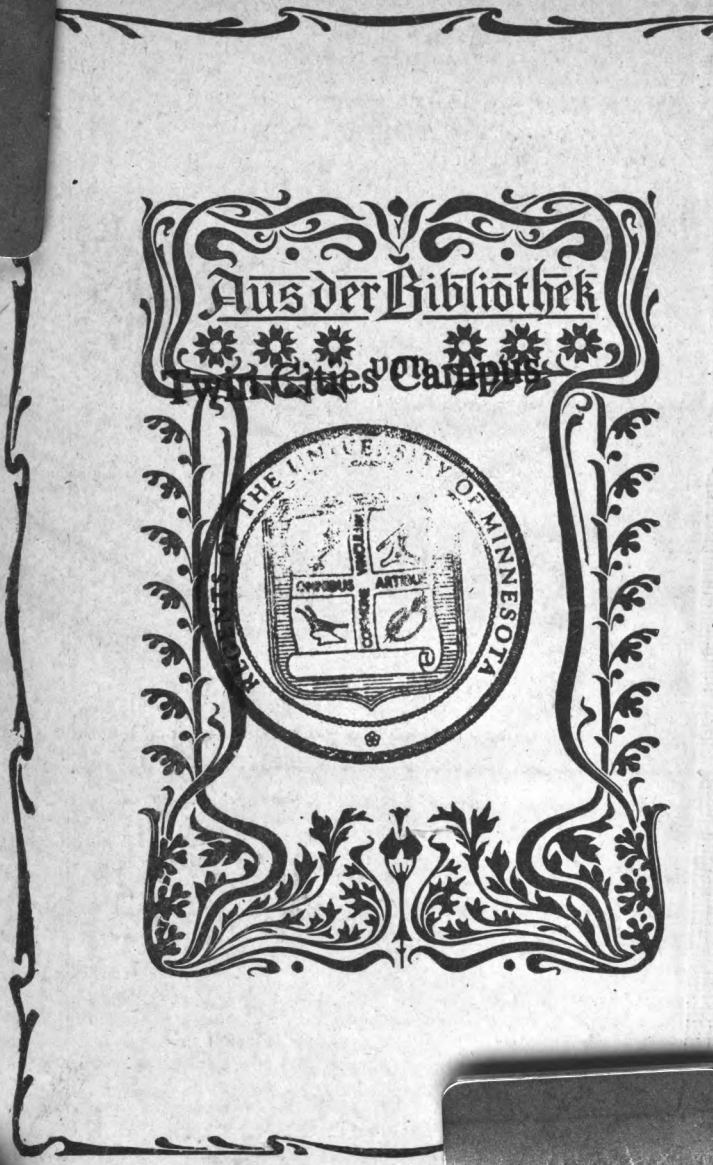 Aus der Bibliothek
von
Twin Cities Campus
REGENTS OF THE UNIVERSITY OF MINNESOTA
OMNIBUS ARTIBUS
COMMUNE VINCULUM